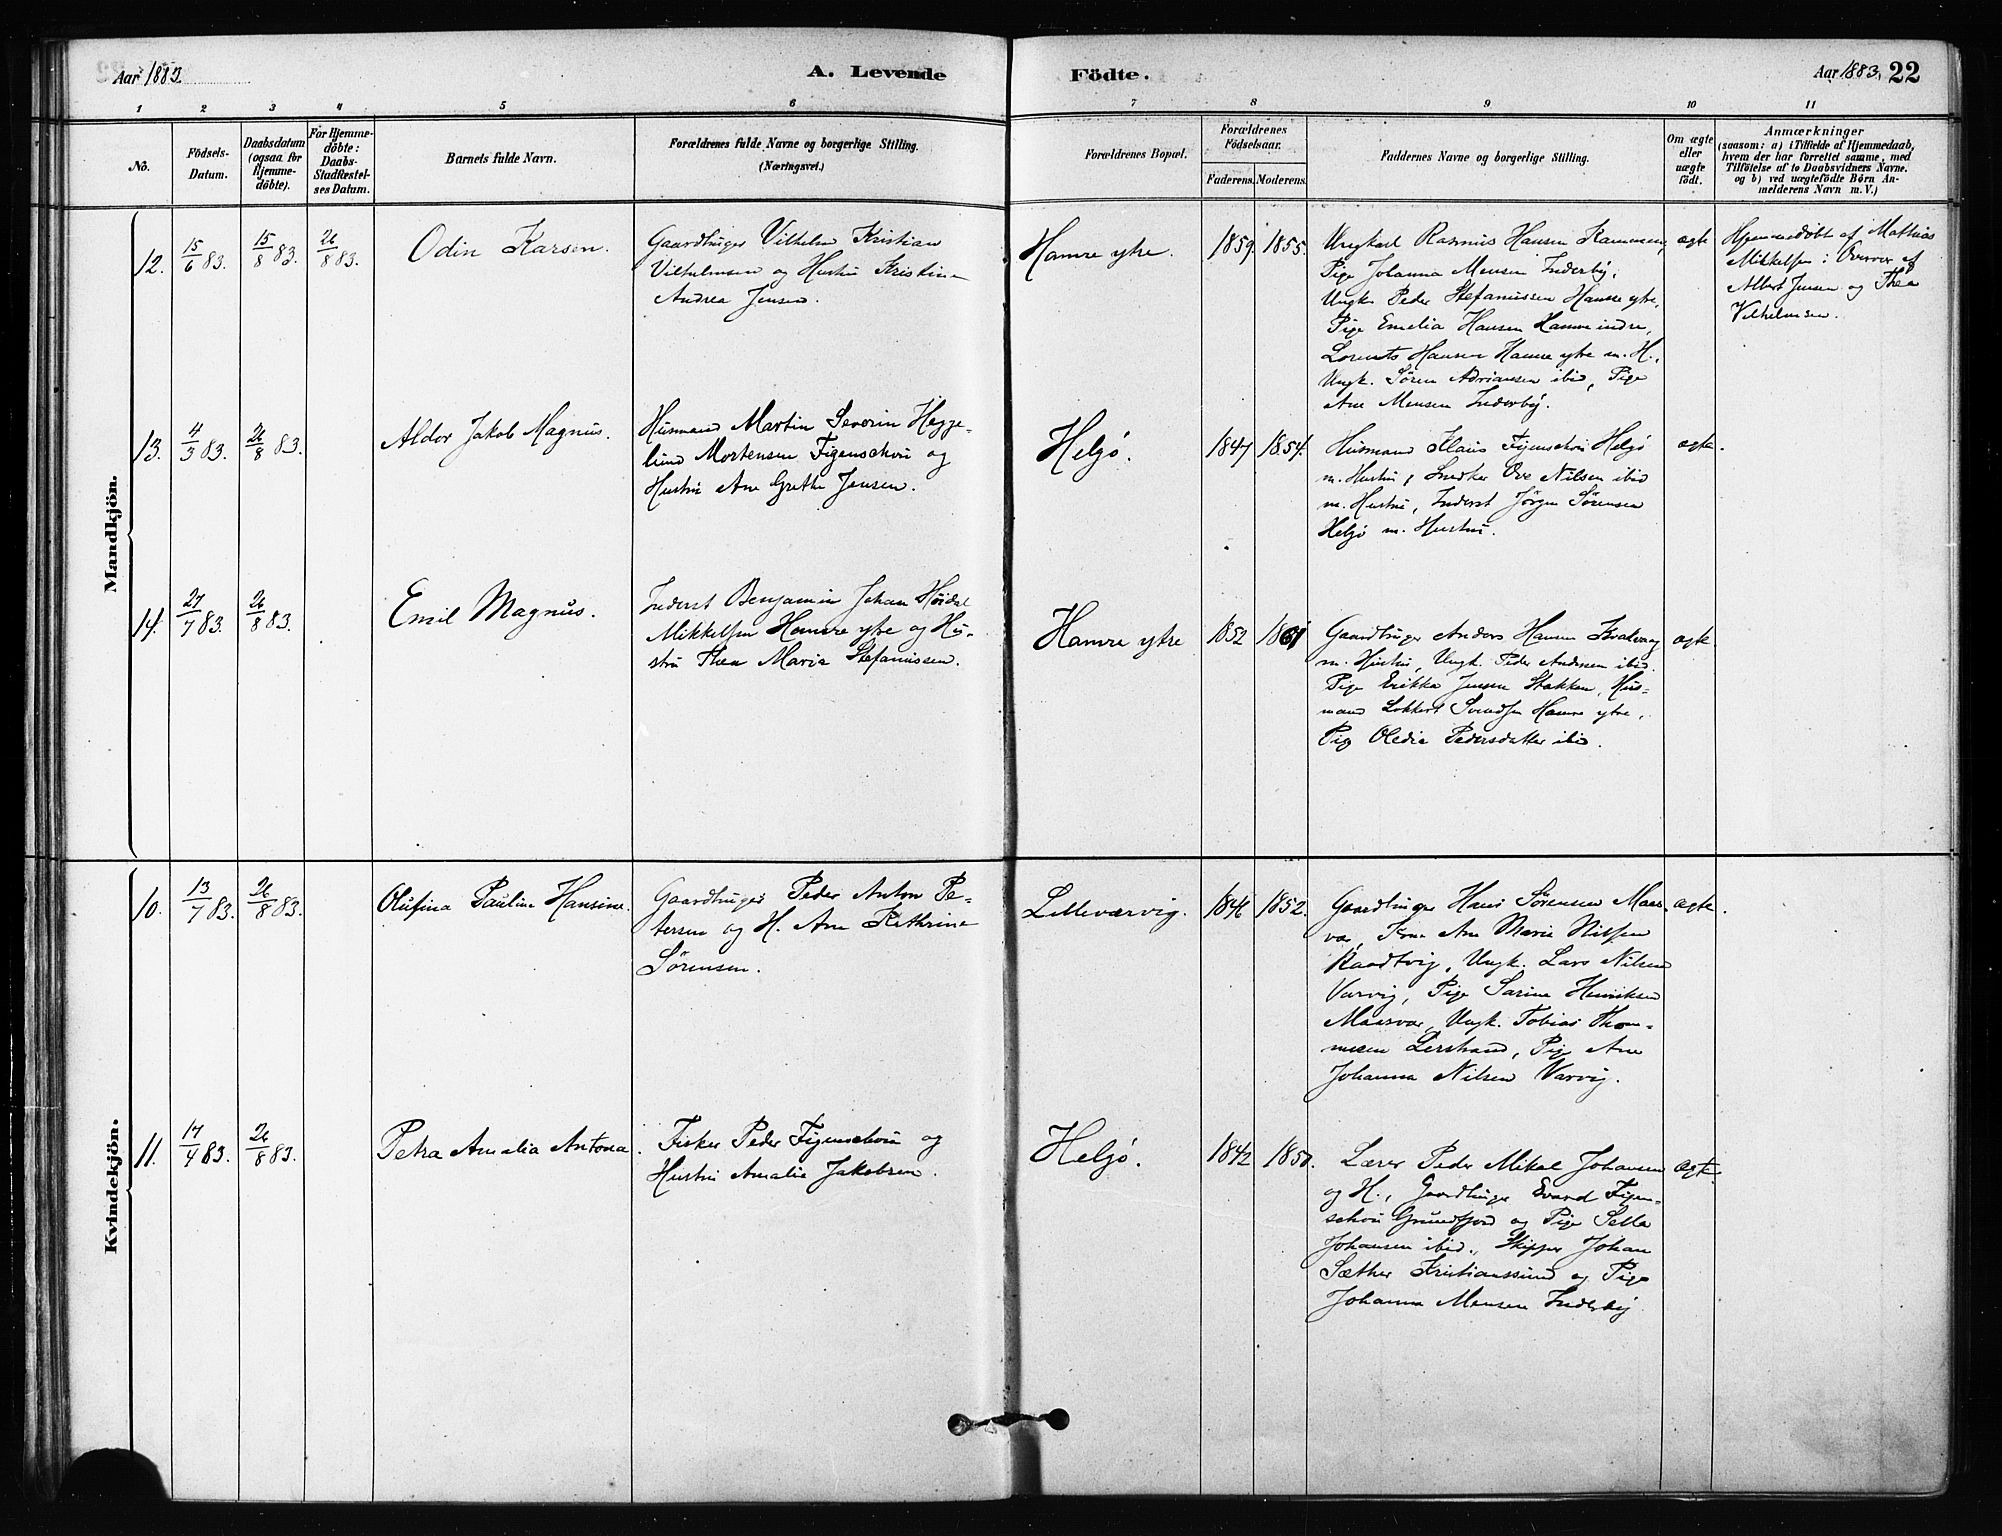 Aar 1883.
A. Levende
Födte.
Aar 1883. 22
1 2 3 4 5 6 7 8 9 10 11
No.
Födsels-
Datum.
Daabsdatum
(ogsaa for
Hjemme-
döbte).
For Hjemme-
döbte:
Daabs-
Stadfæstel-
ses Datum.
Barnets fulde Navn.
Forældrenes fulde Navne og borgerlige Stilling.
(Næringsvei.)
Forældrenes Bopæl.
Forældrenes
Födselsaar.
Faderens. Moderens.
Faddernes Navne og borgerlige Stilling.
Om ægte
eller
uægte
födt.
Anmærkninger
(saasom: a) i Tilfælde af Hjemmedaab,
hvem der har forrettet samme, med
Tilföielse af to Daabsvidners Navne.
og b) ved uægtefödte Börn An-
melderens Navn m. V.)
Mandkjön.
12. 15/6 83. 15/8 83. 26/8 83.
Odin Karsen.
Gaardbruger Vilhelm Kristian
Vilhelmsen og Hustru Kristine
Andrea Jensen.
Hamre ytre.
1859. 1855.
Ungkarl Rasmus Hansen Kammen,
Pige Johanna Mensen Inderby,
Ungk. Peder Stefanussen Hamre ytre,
Pige Emelia Hansen Hamre indre,
Lorents Hansen Hamre ytre m. H.,
Ungk. Sören Adriansen ibid, Pige
Ane Mensen Inderby.
ægte
Hjemmedöbt af Mathias
Mikkelsen i Overvær af
Albert Jensen og Thea
Vilhelmsen.
13. 4/3 83. 26/8 83.
Aldor Jakob Magnus.
Husmand Martin Severin Hegge-
lund Mortensen Figenschou og
Hustru Ane Grethe Jensen.
Helgö.
1847 1854.
Husmand Klaus Figenschou Helgö
m. Hustru, Snedker Ove Nilsen ibid
m. Hustru, Inderst Jörgen Sörensen
Helgö m. Hustru.
ægte.
14. 27/7 83. 26/8 83.
Emil Magnus.
Inderst Benjamin Johan Höidal
Mikkelsen Hamre ytre og Hu-
stru Thea Maria Stefanussen.
Hamre ytre
1852 1861
Gaardbruger Anders Hansen Kvalvaag
m. Hustru, Ungk. Peder Andersen ibid.
Pige Erikka Jensen Stakken, Hus-
mand Lokkert Svendsen Hamre ytre,
Pige Oledie Pedersdatter ibid.
ægte
Kvindekjön.
10. 13/7 83. 26/8 83.
Olufina Pauline Hansine.
Gaardbruger Peder Anton Pe-
tersen og H. Ane Kathrine
Sörensen.
Lilleværvig.
1846 1852.
Gaardbruger Hans Sörensen Maas-
vær, Kone Ane Marie Nilsen
Ungk. Lars Nilsen
Varvig, Pige Sarine Henriksen
Maasvær, Ungk. Tobias Thom-
mesen Lerstrand, Pige Ane
Johanna Nilsen Varvig.
ægte.
11. 17/4 83. 26/8 83.
Petra Amalia Antona.
Fisker Peder Figenschou og
Hustru Amalie Jakobsen.
Helgö.
1842 1850.
Lærer Peder Mikal Johansen
og H., Gaardbruger Evard Figen-
schou Grundfjord og Pige Sella
Johansen ibid., Skipper Johan
Sæther Kristianssund og Pige
Johanna Mensen Inderby
ægte.